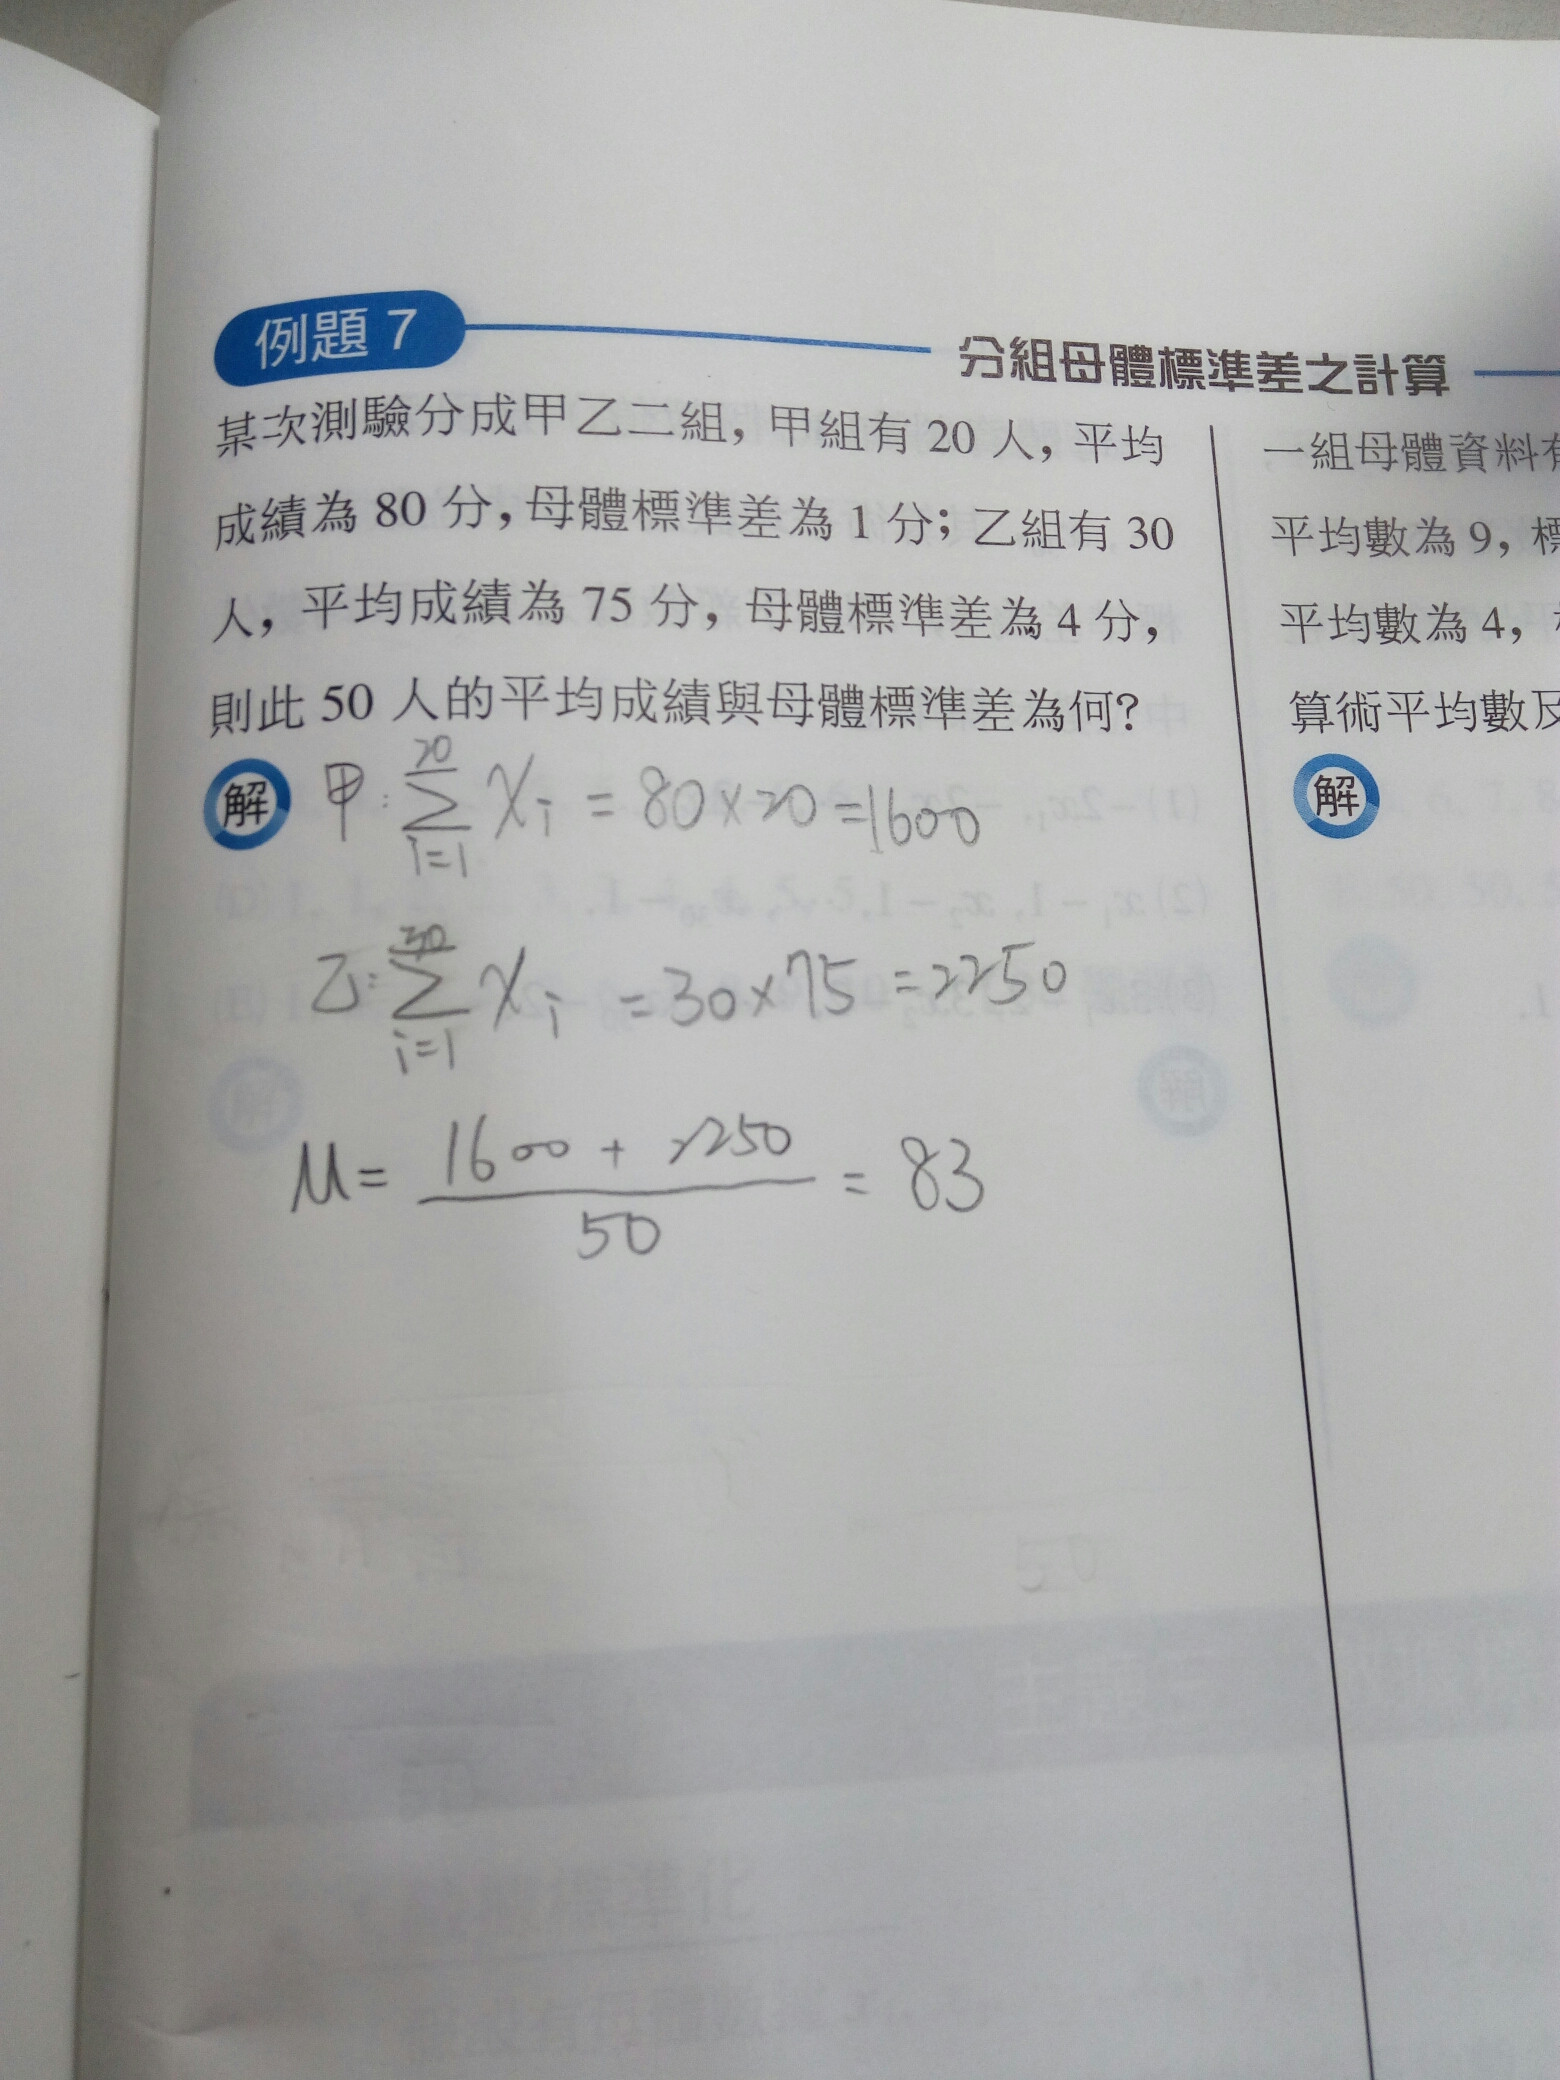 例題 7
分組母體標準差之計算
某次測驗分成甲乙二組，甲組有 20 人，平均
成績為 80 分，母體標準差為 1 分；乙組有 30
人，平均成績為 75 分，母體標準差為 4 分，
則此 50 人的平均成績與母體標準差為何？
解 甲: ∑_{i=1}^{20} x_i = 80×20 = 1600
乙: ∑_{i=1}^{30} x_i = 30×75 = 2250
μ = (1600 + 2250)/50 = 83
一組母體資料
平均數為 9，
平均數為 4，
算術平均數及
解